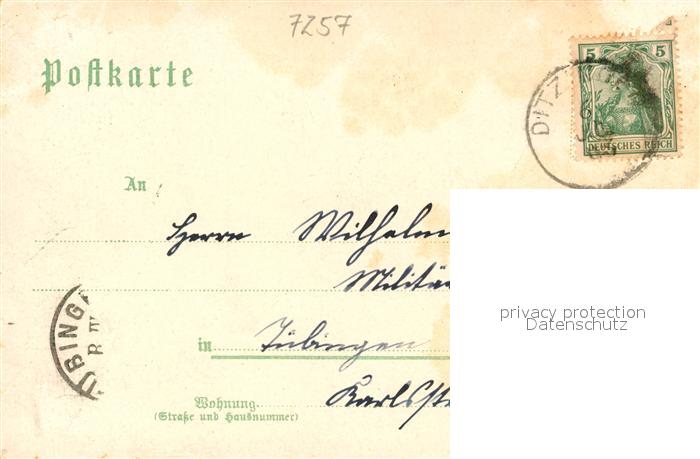 7257
Postkarte
5 5
DEUTSCHES REICH
An
Herrn Wilhelm
Militä
privacy protection
Datenschutz
in Tübingen
Karlsst
Wohnung
(Straße und Hausnummer)
BINGE